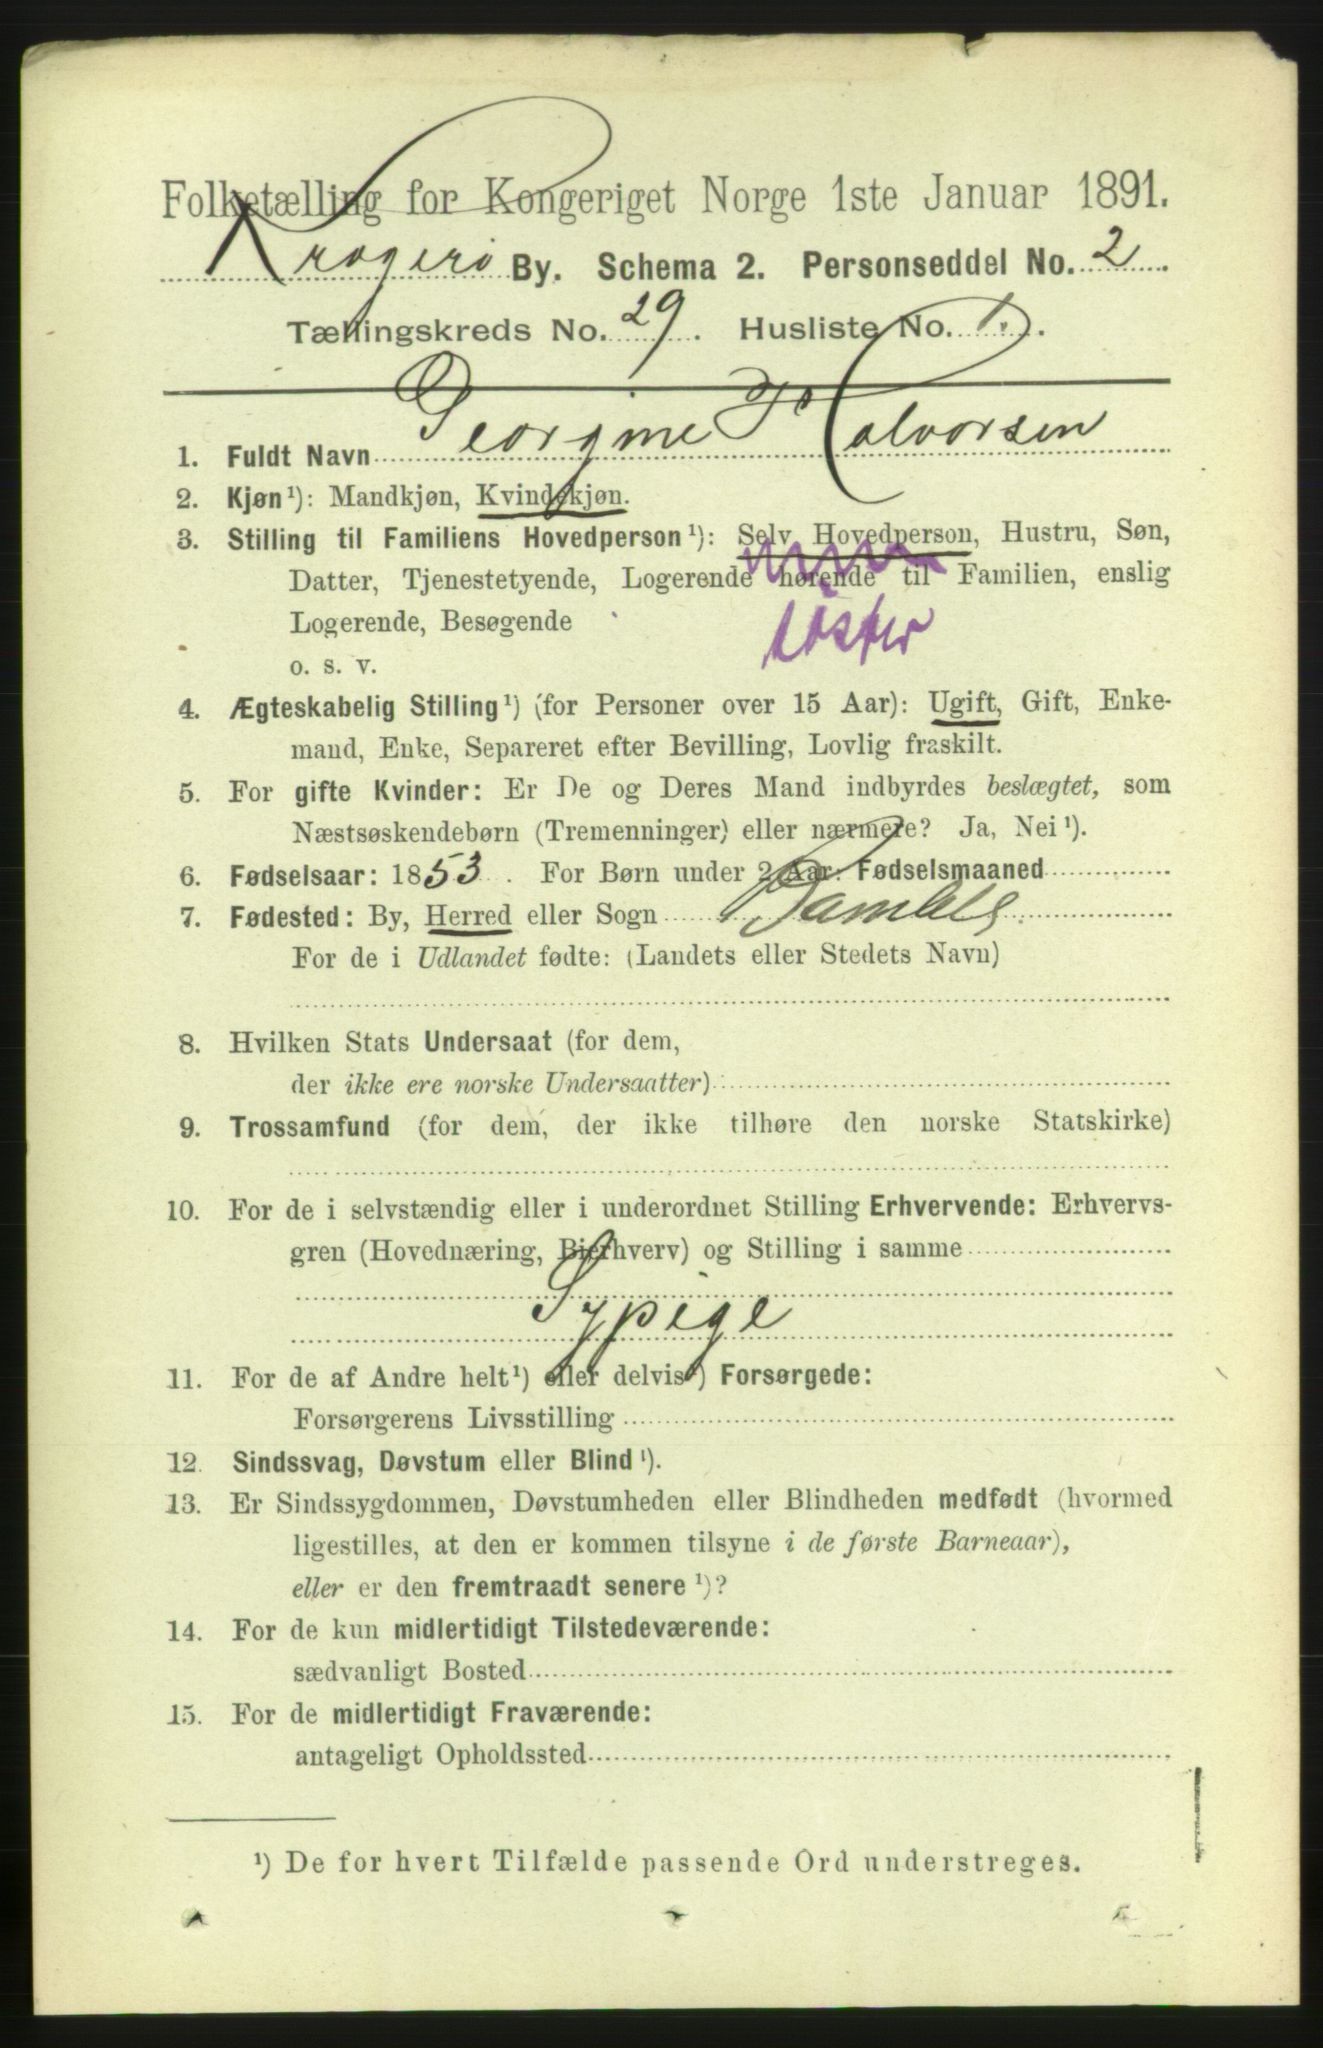 Folketælling for Kongeriget Norge 1ste Januar 1891.
Kragerø By. Schema 2. Personseddel No. 2
Tællingskreds No. 29. Husliste No. 1.
1. Fuldt Navn Georgine Halvorsen
2. Kjøn¹): Mandkjøn, Kvindekjøn.
3. Stilling til Familiens Hovedperson¹): Selv Hovedperson, Hustru, Søn,
Datter, Tjenestetyende, Logerende hørende til Familien, enslig
Logerende, Besøgende
søster
o. s. v.
4. Ægteskabelig Stilling¹) (for Personer over 15 Aar): Ugift, Gift, Enke-
mand, Enke, Separeret efter Bevilling, Lovlig fraskilt.
5. For gifte Kvinder: Er De og Deres Mand indbyrdes beslægtet, som
Næstsøskendebørn (Tremenninger) eller nærmere? Ja, Nei¹).
6. Fødselsaar: 1853. For Børn under 2 Aar: Fødselsmaaned
7. Fødested: By, Herred eller Sogn Bamble
For de i Udlandet fødte: (Landets eller Stedets Navn)
8. Hvilken Stats Undersaat (for dem,
der ikke ere norske Undersaatter)
9. Trossamfund (for dem, der ikke tilhøre den norske Statskirke)
10. For de i selvstændig eller i underordnet Stilling Erhvervende: Erhvervs-
gren (Hovednæring, Bierhverv) og Stilling i samme
Sypige
11. For de af Andre helt¹) eller delvis¹) Forsørgede:
Forsørgerens Livsstilling
12. Sindssvag, Døvstum eller Blind¹).
13. Er Sindssygdommen, Døvstumheden eller Blindheden medfødt (hvormed
ligestilles, at den er kommen tilsyne i de første Barneaar),
eller er den fremtraadt senere¹)?
14. For de kun midlertidigt Tilstedeværende:
sædvanligt Bosted
15. For de midlertidigt Fraværende:
antageligt Opholdssted
¹) De for hvert Tilfælde passende Ord understreges.